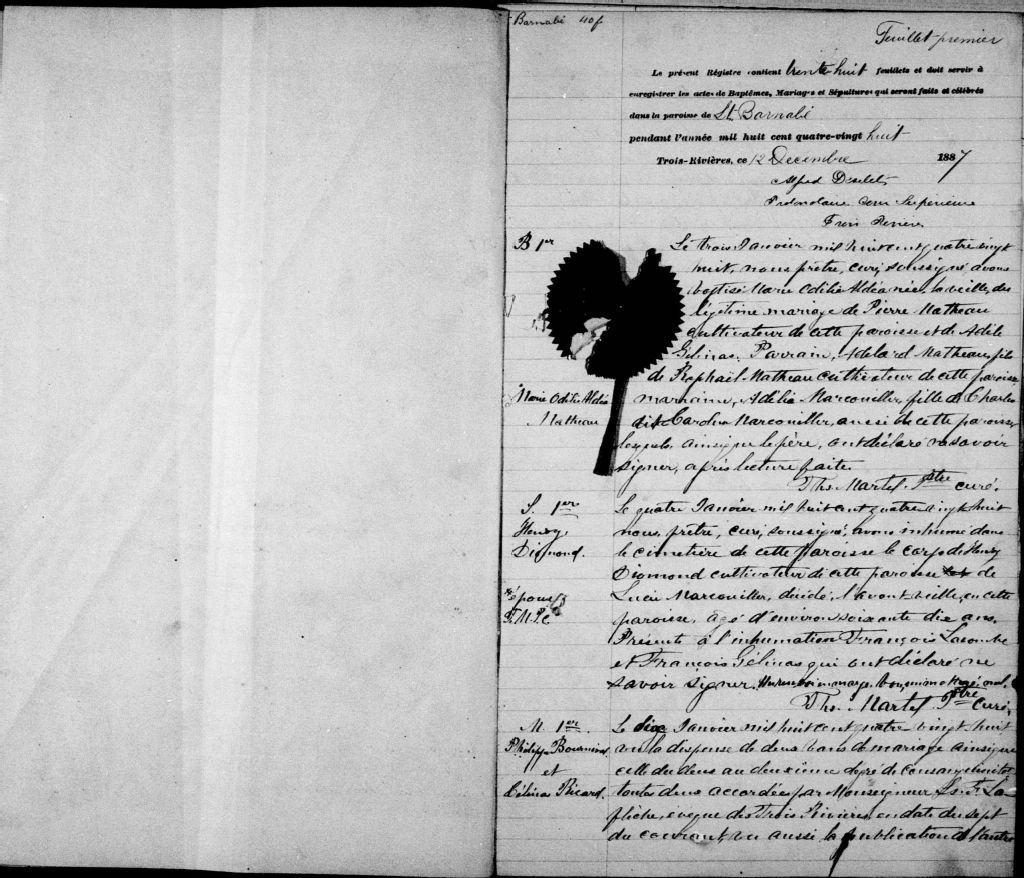 Barnabé 40 f
Feuillet premier
Le présent Régistre contient trente huit feuillets et doit servir à
enregistrer les actes de Baptêmes, Mariages et Sépultures qui seront faits et célébrés
dans la paroisse de St Barnabé
pendant l'année mil huit cent quatre-vingt huit
Trois-Rivières, ce 12 Decembre 1887
Alfred Désilets
Protonotaire Cour Supérieure
Trois Rivières
B 1er
Le trois Janvier mil huit cent quatre vingt
huit, nous prêtre, curé, soussigné avons
baptisé Marie Odilie Aldéa née la veille, du
légitime mariage de Pierre Matheau
cultivateur de cette paroisse et de Adèle
Gélinas. Parrain, Adelard Matheau fils
de Raphaël Matheau cultivateur de cette paroisse
Marie Odilie Aldéa
Matheau
marraine, Adélia Marcouiller, fille de Charles
dit Marcouiller, aussi de cette paroisse,
lesquels, ainsi que le père, ont déclaré ne savoir
signer, après lecture faite.
Ths. Martel Ptre curé.
S. 1er
Henry
Diamond.
Le quatre Janvier mil huit cent quatre vingt huit
nous, prêtre, curé, soussigné, avons inhumé dans
le cimetière de cette paroisse le corps de Henry
Diomond cultivateur de cette paroisse de
Lucie Marcouiller, décédé, l'avant veille, en cette
époux
T. M. Ptre
paroisse, âgé d'environ soixante dix ans.
Présents à l'inhumation François Lacombe
et François Gélinas qui ont déclaré ne
savoir signer. Un renvoi en marge bon, un mot rayé nul.
Ths. Martel Ptre curé,
M. 1er
Philippe Bournival
et
Célina Ricard.
Le dix Janvier mil huit cent quatre vingt huit
vu la dispense de deux bans de mariage ainsi que
celle du deux au deuxième degré de consanguinité
toutes deux accordées par Monseigneur Ls. F. La
flèche, évêque des Trois Rivières, en date du sept
du courant, vu aussi la publication de l'autre